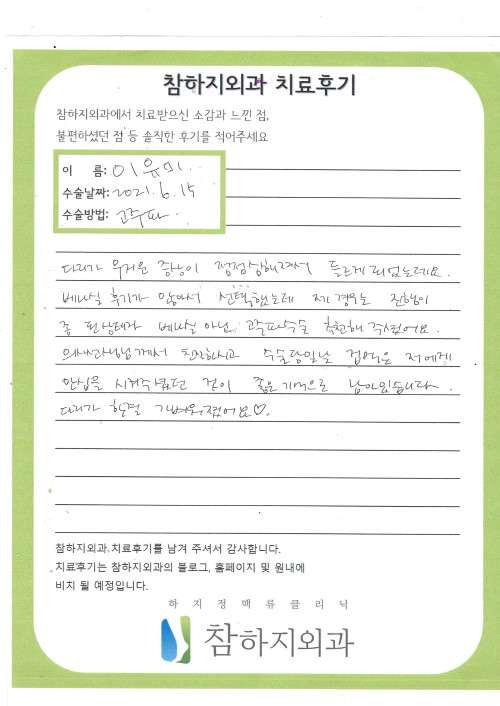 참하지외과 치료후기
참하지외과에서 치료받으신 소감과 느낀 점,
불편하셨던 점 등 솔직한 후기를 적어주세요
이 름: 이유미
수술날짜: 2021. 6. 15
수술방법: 고주파
다리가 무거운 증상이 점점심해져서 들르게 되었는데요.
베나실 후기가 많아서 선택했는데 제 경우는 진행이
좀 된상태라 베나실 아닌 고주파수술 추천해 주셨어요.
의사선생님께서 친절하시고 수술당일날 겁먹은 저에게
안심을 시켜주셨던 것이 좋은기억으로 남아있습니다.
다리가 한결 가벼워졌어요♡.
참하지외과 치료후기를 남겨 주셔서 감사합니다.
치료후기는 참하지외과의 블로그, 홈페이지 및 원내에
비치 될 예정입니다.
하지정맥류클리닉
참하지외과